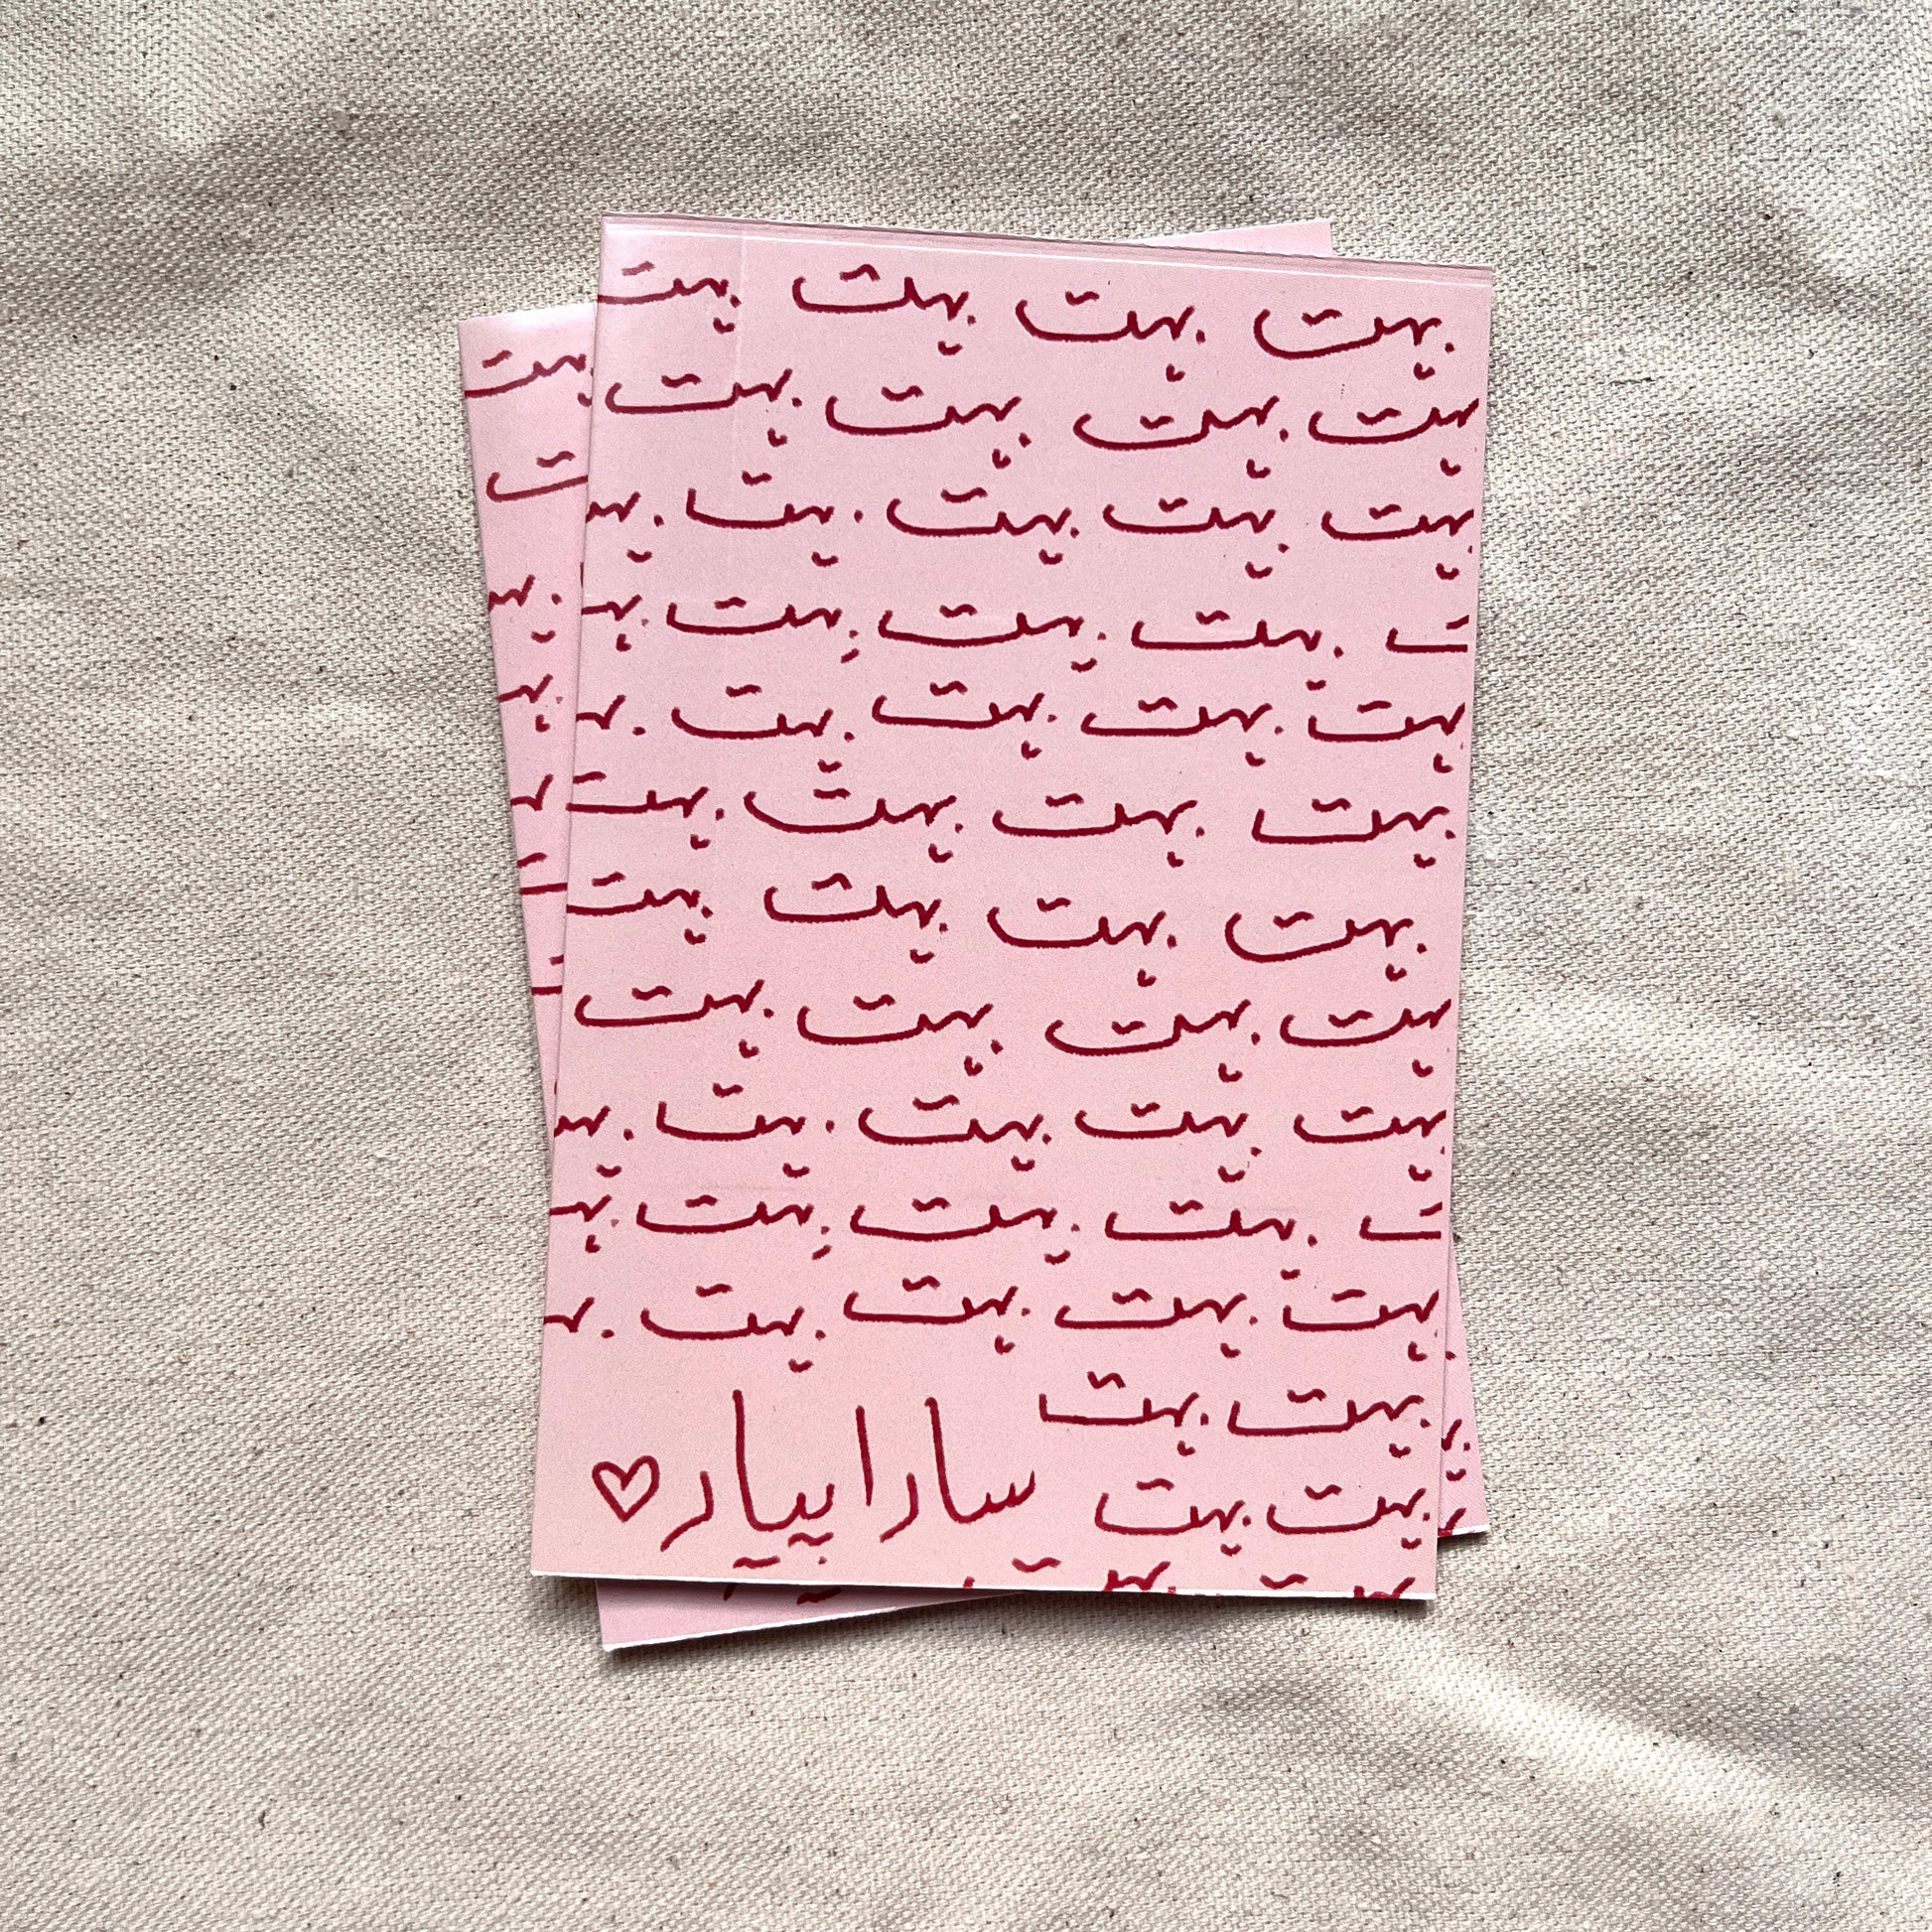 بہت بہت بہت بہت
بہت بہت بہت بہت
بہت بہت بہت بہت
بہت بہت بہت
بہت بہت بہت بہت
بہت بہت بہت بہت
بہت بہت بہت بہت
بہت بہت بہت بہت
بہت بہت بہت بہت
بہت بہت بہت
بہت بہت بہت بہت
بہت بہت
بہت بہت سارا پیار